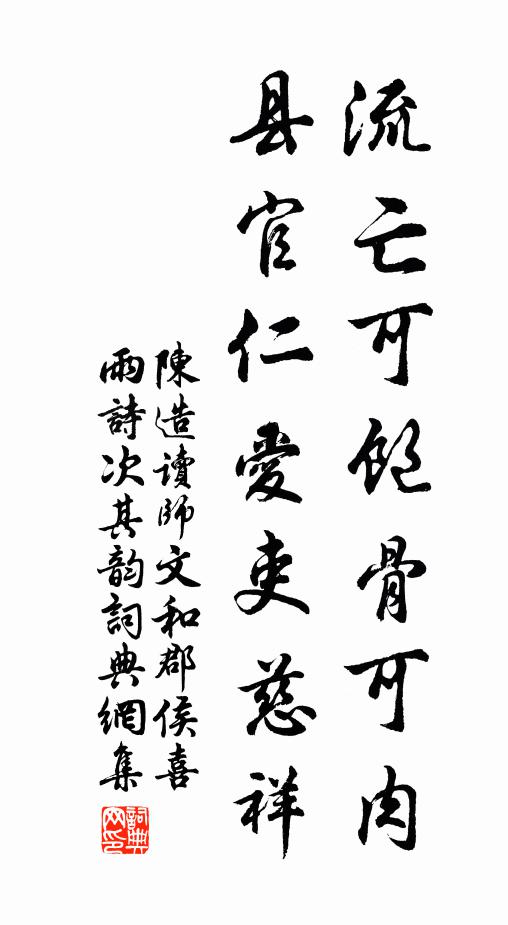 流亡可飽骨可肉
县官仁愛吏慈祥
陳造讀師文和郡侯喜
雨詩次其韵詞典網集
詞典網印